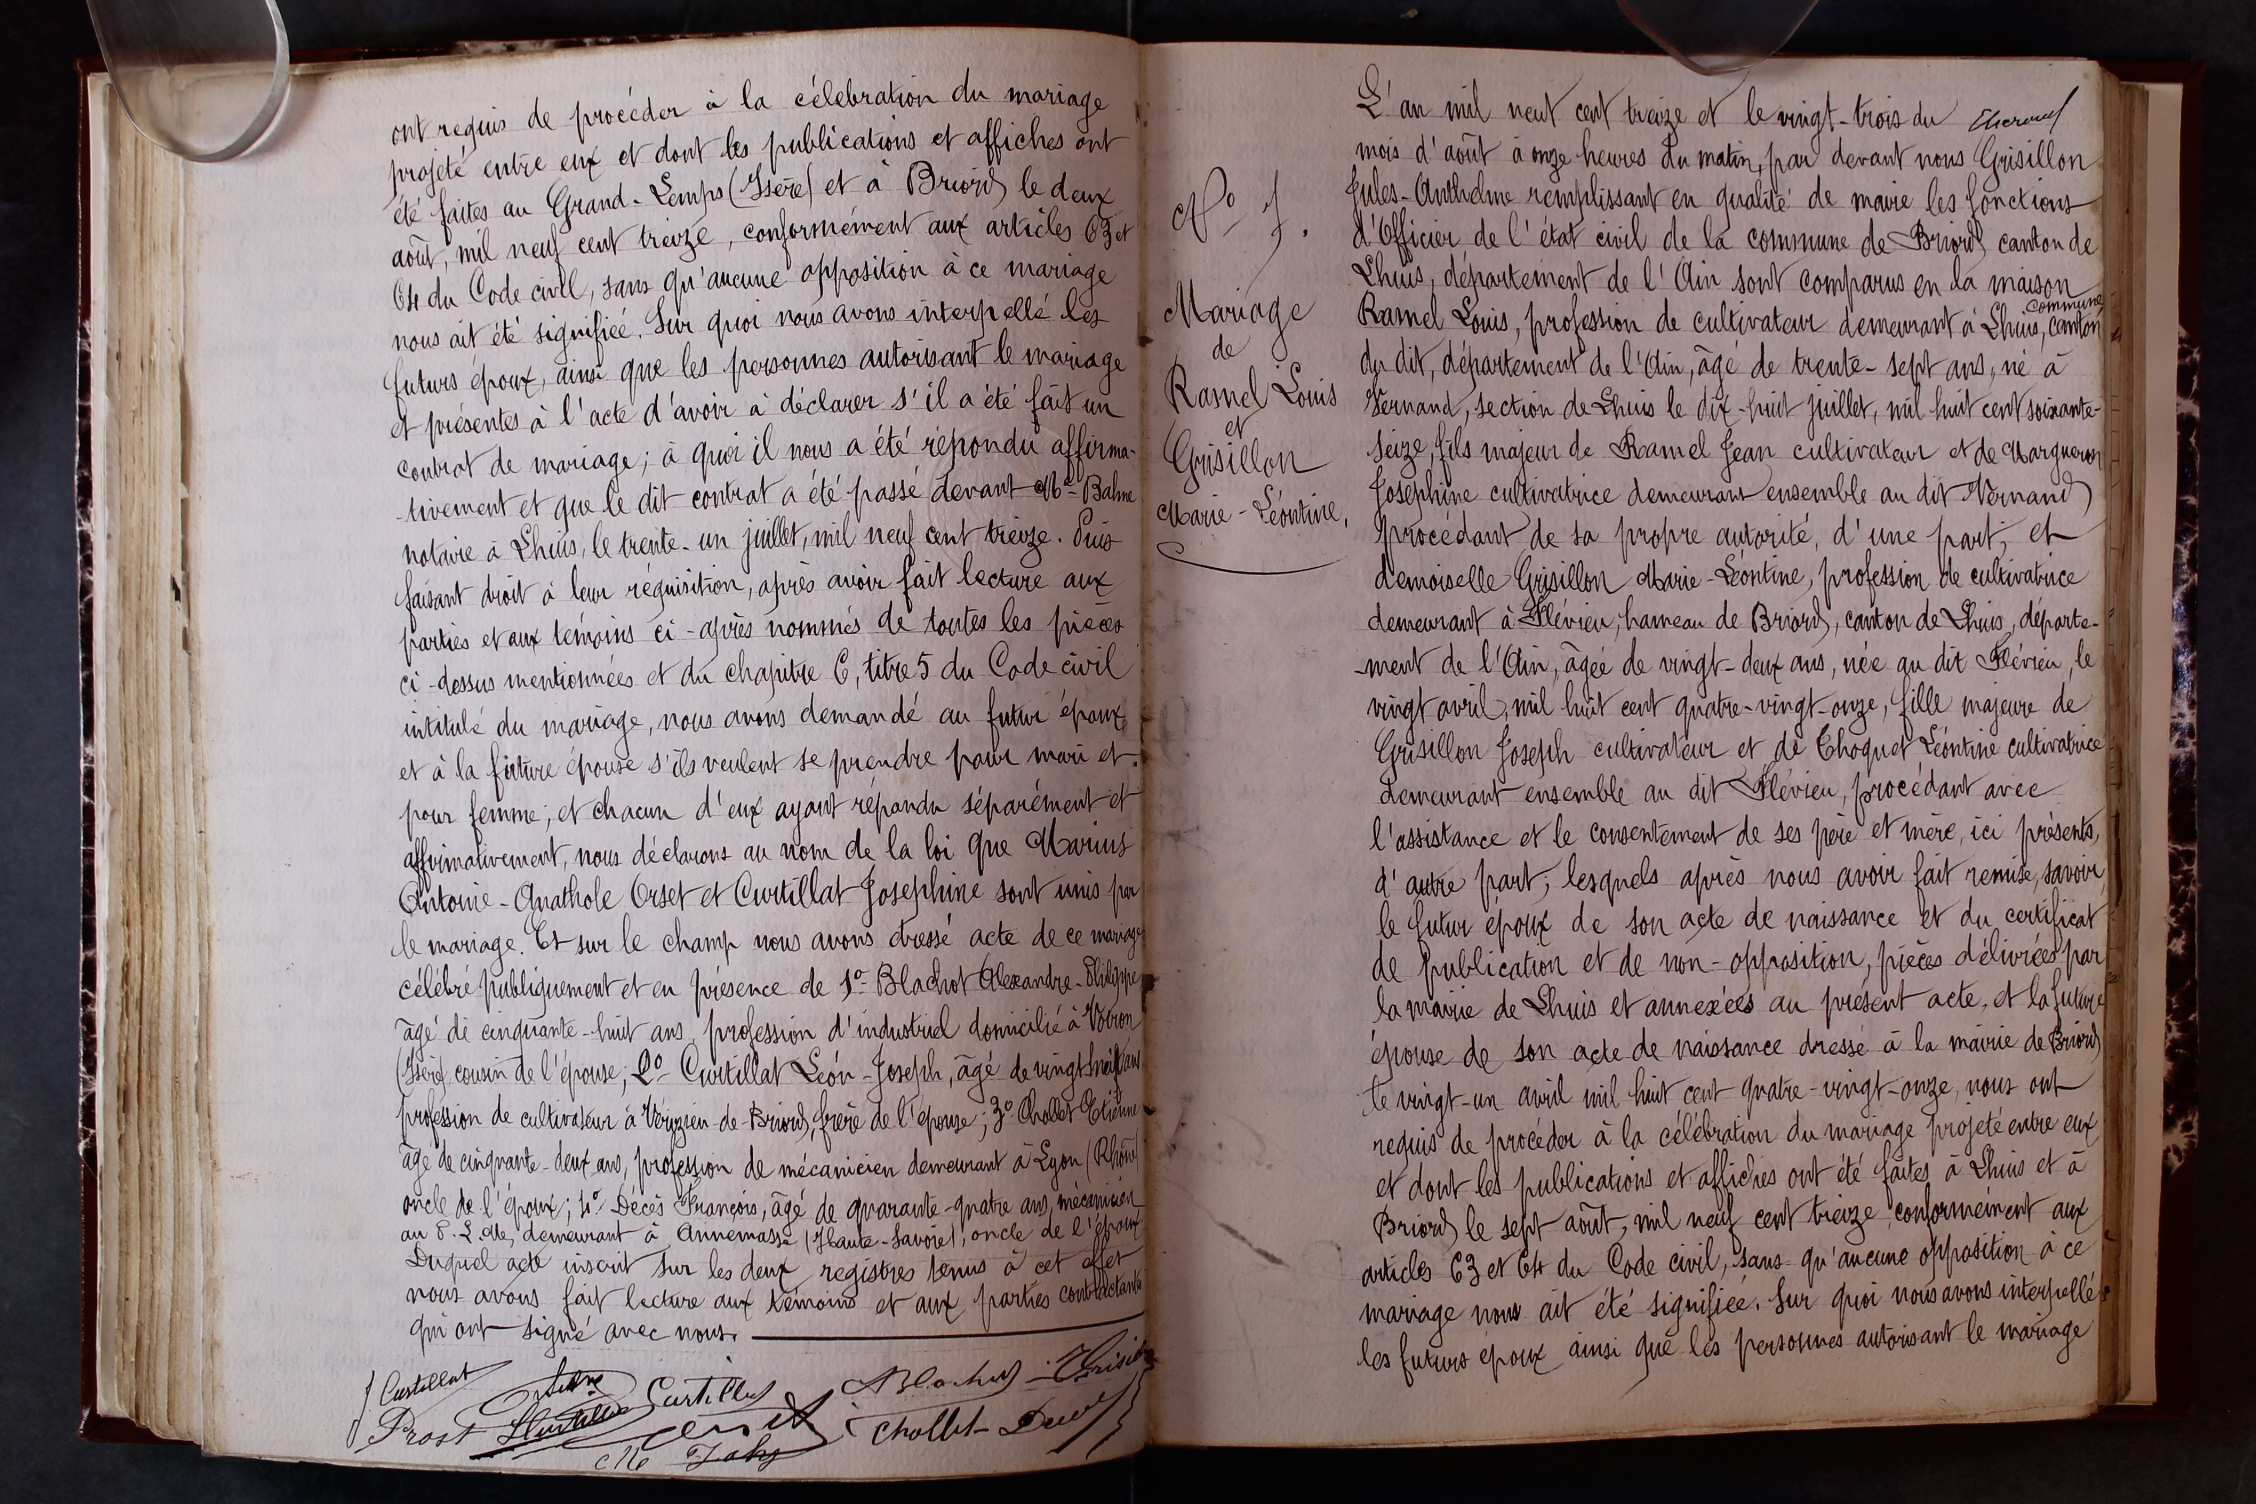 ont requis de procéder à la célébration du mariage
projeté entre eux et dont les publications et affiches ont
été faites au Grand-Lemps (Isère) et à Briord le deux
août, mil neuf cent treize, conformément aux articles 63 et
64 du Code civil, sans qu'aucune opposition à ce mariage
nous ait été signifiée. Sur quoi nous avons interpellé les
futurs époux, ainsi que les personnes autorisant le mariage
et présentes à l'acte d'avoir à déclarer s'il a été fait un
contrat de mariage; à quoi il nous a été répondu affirma-
-tivement et que le dit contrat a été passé devant Me Balme
notaire à Lhuis, le trente-un juillet, mil neuf cent treize. Puis
faisant droit à leur réquisition, après avoir fait lecture aux
parties et aux témoins ci-après nommés de toutes les pièces
ci-dessus mentionnées et du chapitre 6, titre 5 du Code civil
intitulé du mariage, nous avons demandé au futur époux
et à la future épouse s'ils veulent se prendre pour mari et
pour femme; et chacun d'eux ayant répondu séparément et
affirmativement, nous déclarons au nom de la loi que Marius
Antoine-Anathole Orset et Curtillat Josephine sont unis par
le mariage. Et sur le champ nous avons dressé acte de ce mariage
célébré publiquement et en présence de 1o- Blachot Alexandre-Philippe
âgé de cinquante-huit ans profession d'industriel domicilié à Voiron
(Isère) cousin de l'épouse; 2o- Curtillat Léon-Joseph, âgé de vingt neuf ans
profession de cultivateur à Vérizieu-de-Briord, frère de l'épouse; 3o Chollet Etienne
âgé de cinquante-deux ans, profession de mécanicien demeurant à Lyon (Rhône)
oncle de l'époux; 4o- Decès François, âgé de quarante-quatre ans, mécanicien
au P. L. M, demeurant à Annemasse (Haute-Savoie), oncle de l'époux
Duquel acte inscrit sur les deux registres tenus à cet effet
nous avons fait lecture aux témoins et aux parties contractantes
qui ont signé avec nous.
J Curtillat
Curtillat
Blachot
Prost
Chollet
No 7.
Mariage
de
Ramel Louis
et
Grisillon
Marie-Léontine.
L'an mil neuf cent treize et le vingt-trois du
mois d'août à onze heures du matin, par devant nous Grisillon
Jules-Anthelme remplissant en qualité de maire les fonctions
d'Officier de l'état civil de la commune de Briord canton de
Lhuis, département de l'Ain sont comparus en la maison commune
Ramel Louis, profession de cultivateur demeurant à Lhuis, canton
du dit, département de l'Ain, âgé de trente-sept ans, né à
Vernand, section de Lhuis le dix-huit juillet, mil huit cent soixante-
seize, fils majeur de Ramel Jean cultivateur et de Margueron
Josephine cultivatrice demeurant ensemble au dit Vernand
procédant de sa propre autorité, d'une part; et
demoiselle Grisillon Marie-Léontine, profession de cultivatrice
demeurant à Flévieu, hameau de Briord, canton de Lhuis, départe-
-ment de l'Ain, âgée de vingt-deux ans, née au dit Flévieu, le
vingt avril, mil huit cent quatre-vingt-onze, fille majeure de
Grisillon Joseph cultivateur et de Choquet Léontine cultivatrice
demeurant ensemble au dit Flévieu, procédant avec
l'assistance et le consentement de ses père et mère, ici présents,
d'autre part; lesquels après nous avoir fait remise, savoir
le futur époux de son acte de naissance et du certificat
de publication et de non-opposition, pièces délivrées par
la mairie de Lhuis et annexées au présent acte, et la future
épouse de son acte de naissance dressé à la mairie de Briord
le vingt-un avril mil huit cent quatre-vingt-onze, nous ont
requis de procéder à la célébration du mariage projeté entre eux
et dont les publications et affiches ont été faites à Lhuis et à
Briord le sept août, mil neuf cent treize conformément aux
articles 63 et 64 du Code civil, sans qu'aucune opposition à ce
mariage nous ait été signifiée. Sur quoi nous avons interpellé
les futurs époux ainsi que les personnes autorisant le mariage